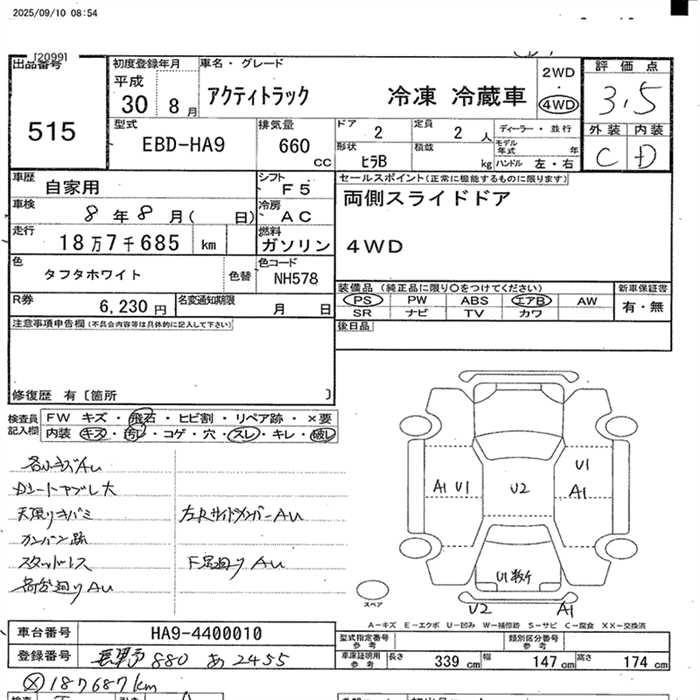 2025/09/10 08:54
[2099]
出品番号
515
初度登録年月
平成
30 8 月
車名・グレード
アクティトラック 冷凍 冷蔵車
2WD
4WD
評価点
3.5
外装 内装
C D
型式
EBD-HA9
排気量
660 cc
ドア 2
定員 2 人
形状 ヒラB
積載 kg
ディーラー・並行
モデル年式 年
ハンドル 左・右
車歴
自家用
シフト F5
車検
8 年 8 月( 日)
冷房 AC
走行
18万7千685 km
燃料
ガソリン
色
タフタホワイト
色替
色コード
NH578
R券
6,230 円
名変通知期限
月 日
セールスポイント(正常に機能するものに限ります)
両側スライドドア
4WD
装備品(純正品に限り○をつけてください)
PS PW ABS エアB AW
SR ナビ TV カワ
新車保証書
有・無
後日品
注意事項申告欄(不具合内容等は具体的に記入して下さい)
修復歴 有[箇所 ]
検査員
記入欄
FW キズ・飛石・ヒビ割・リペア跡・×要
内装 キズ・汚レ・コゲ・穴・スレ・キレ・破レ
各小キズAU
Dシートヤブレ大
カンバン跡
スタッドレス
左右サイドメンバーAU
F足廻りAU
荷台廻りAU
A1 U1
U2
U1
A1
U1数ケ
U2
A1
スペア
A-キズ E-エクボ U-凹み W-補修跡 S-サビ C-腐食 XX-交換済
車台番号
HA9-4400010
登録番号
880 あ 2455
型式指定番号
参考
類別区分番号
参考
車庫証明用
参考
長さ 339 cm 幅 147 cm 高さ 174 cm
187687km